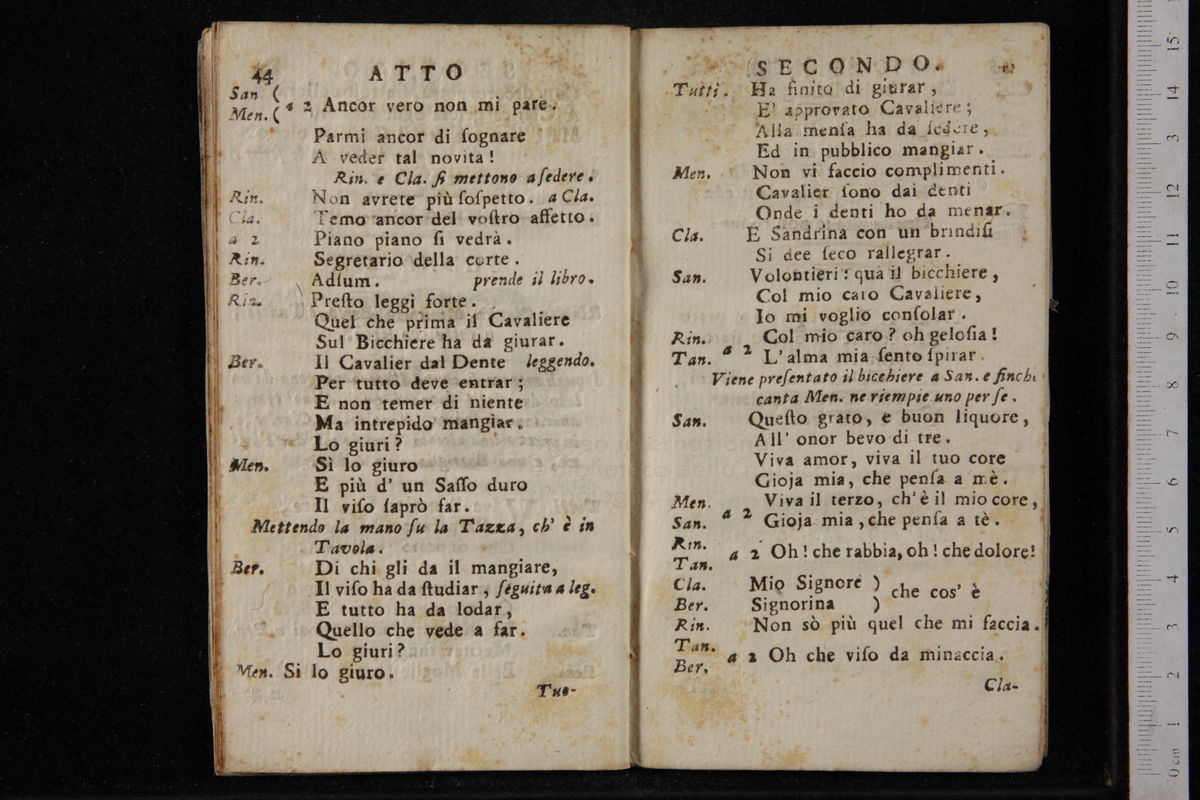 44 ATTO
San (
Men. ( a 2 Ancor vero non mi pare.
Parmi ancor di ſognare
A veder tal novita!
Rin. e Cla. ſi mettono a ſedere.
Rin. Non avrete più ſoſpetto. a Cla.
Cla. Temo ancor del voſtro affetto.
a 2 Piano piano ſi vedrà.
Rin. Segretario della corte.
Ber. Adſum. prende il libro.
Rin. Preſto leggi forte.
Quel che prima il Cavaliere
Sul Bicchiere ha da giurar.
Ber. Il Cavalier dal Dente leggendo.
Per tutto deve entrar;
E non temer di niente
Ma intrepido mangiar.
Lo giuri?
Men. Sì lo giuro
E più d' un Saſſo duro
Il viſo ſaprò far.
Mettendo la mano ſu la Tazza, ch' è in
Tavola.
Ber. Di chi gli da il mangiare,
Il viſo ha da ſtudiar, ſeguita a leg.
E tutto ha da lodar,
Quello che vede a far.
Lo giuri?
Men. Si lo giuro.
Tut-
SECONDO.
Tutti. Ha finito di giurar,
E' approvato Cavaliere;
Alla menſa ha da ſedere,
Ed in pubblico mangiar.
Men. Non vi faccio complimenti.
Cavalier ſono dai denti
Onde i denti ho da menar.
Cla. E Sandrina con un brindiſi
Si dee ſeco rallegrar.
San. Volontieri: qua il bicchiere,
Col mio caro Cavaliere,
Io mi voglio conſolar.
Rin. Col mio caro? oh geloſia!
Tan. a 2 L'alma mia ſento ſpirar.
Viene preſentato il bicchiere a San. e finch
canta Men. ne riempie uno per ſe.
San. Queſto grato, e buon liquore,
All' onor bevo di tre.
Viva amor, viva il tuo core
Gioja mia, che penſa a mè.
Men. Viva il terzo, ch'è il mio core,
San. a 2 Gioja mia, che penſa a tè.
Rin.
Tan. a 2 Oh! che rabbia, oh! che dolore!
Cla. Mio Signore ) che cos' è
Ber. Signorina )
Rin. Non sò più quel che mi faccia.
Tan.
Ber. a 2 Oh che viſo da minaccia.
Cla-